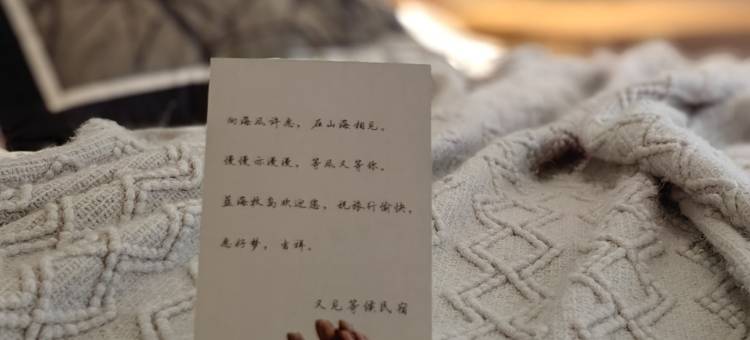 向海风许愿，在山海相见。
慢慢亦漫漫，等风又等你。
蓝海牧岛欢迎您，祝旅行愉快，
愿好梦，吉祥。
又见等候民宿